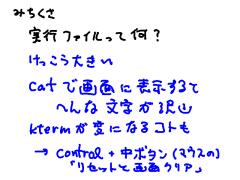 みちくさ
実行ファイルって何？
けっこう大きい
catで画面に表示すると
へんな文字が沢山
ktermが変になるコトも
→ Control + 中ボタン(マウスの)
「リセットと画面クリア」